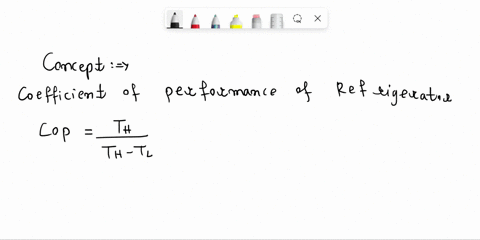 Concept :→
Coefficient of performance of Refrigerator
Cop = TH / TH - TL